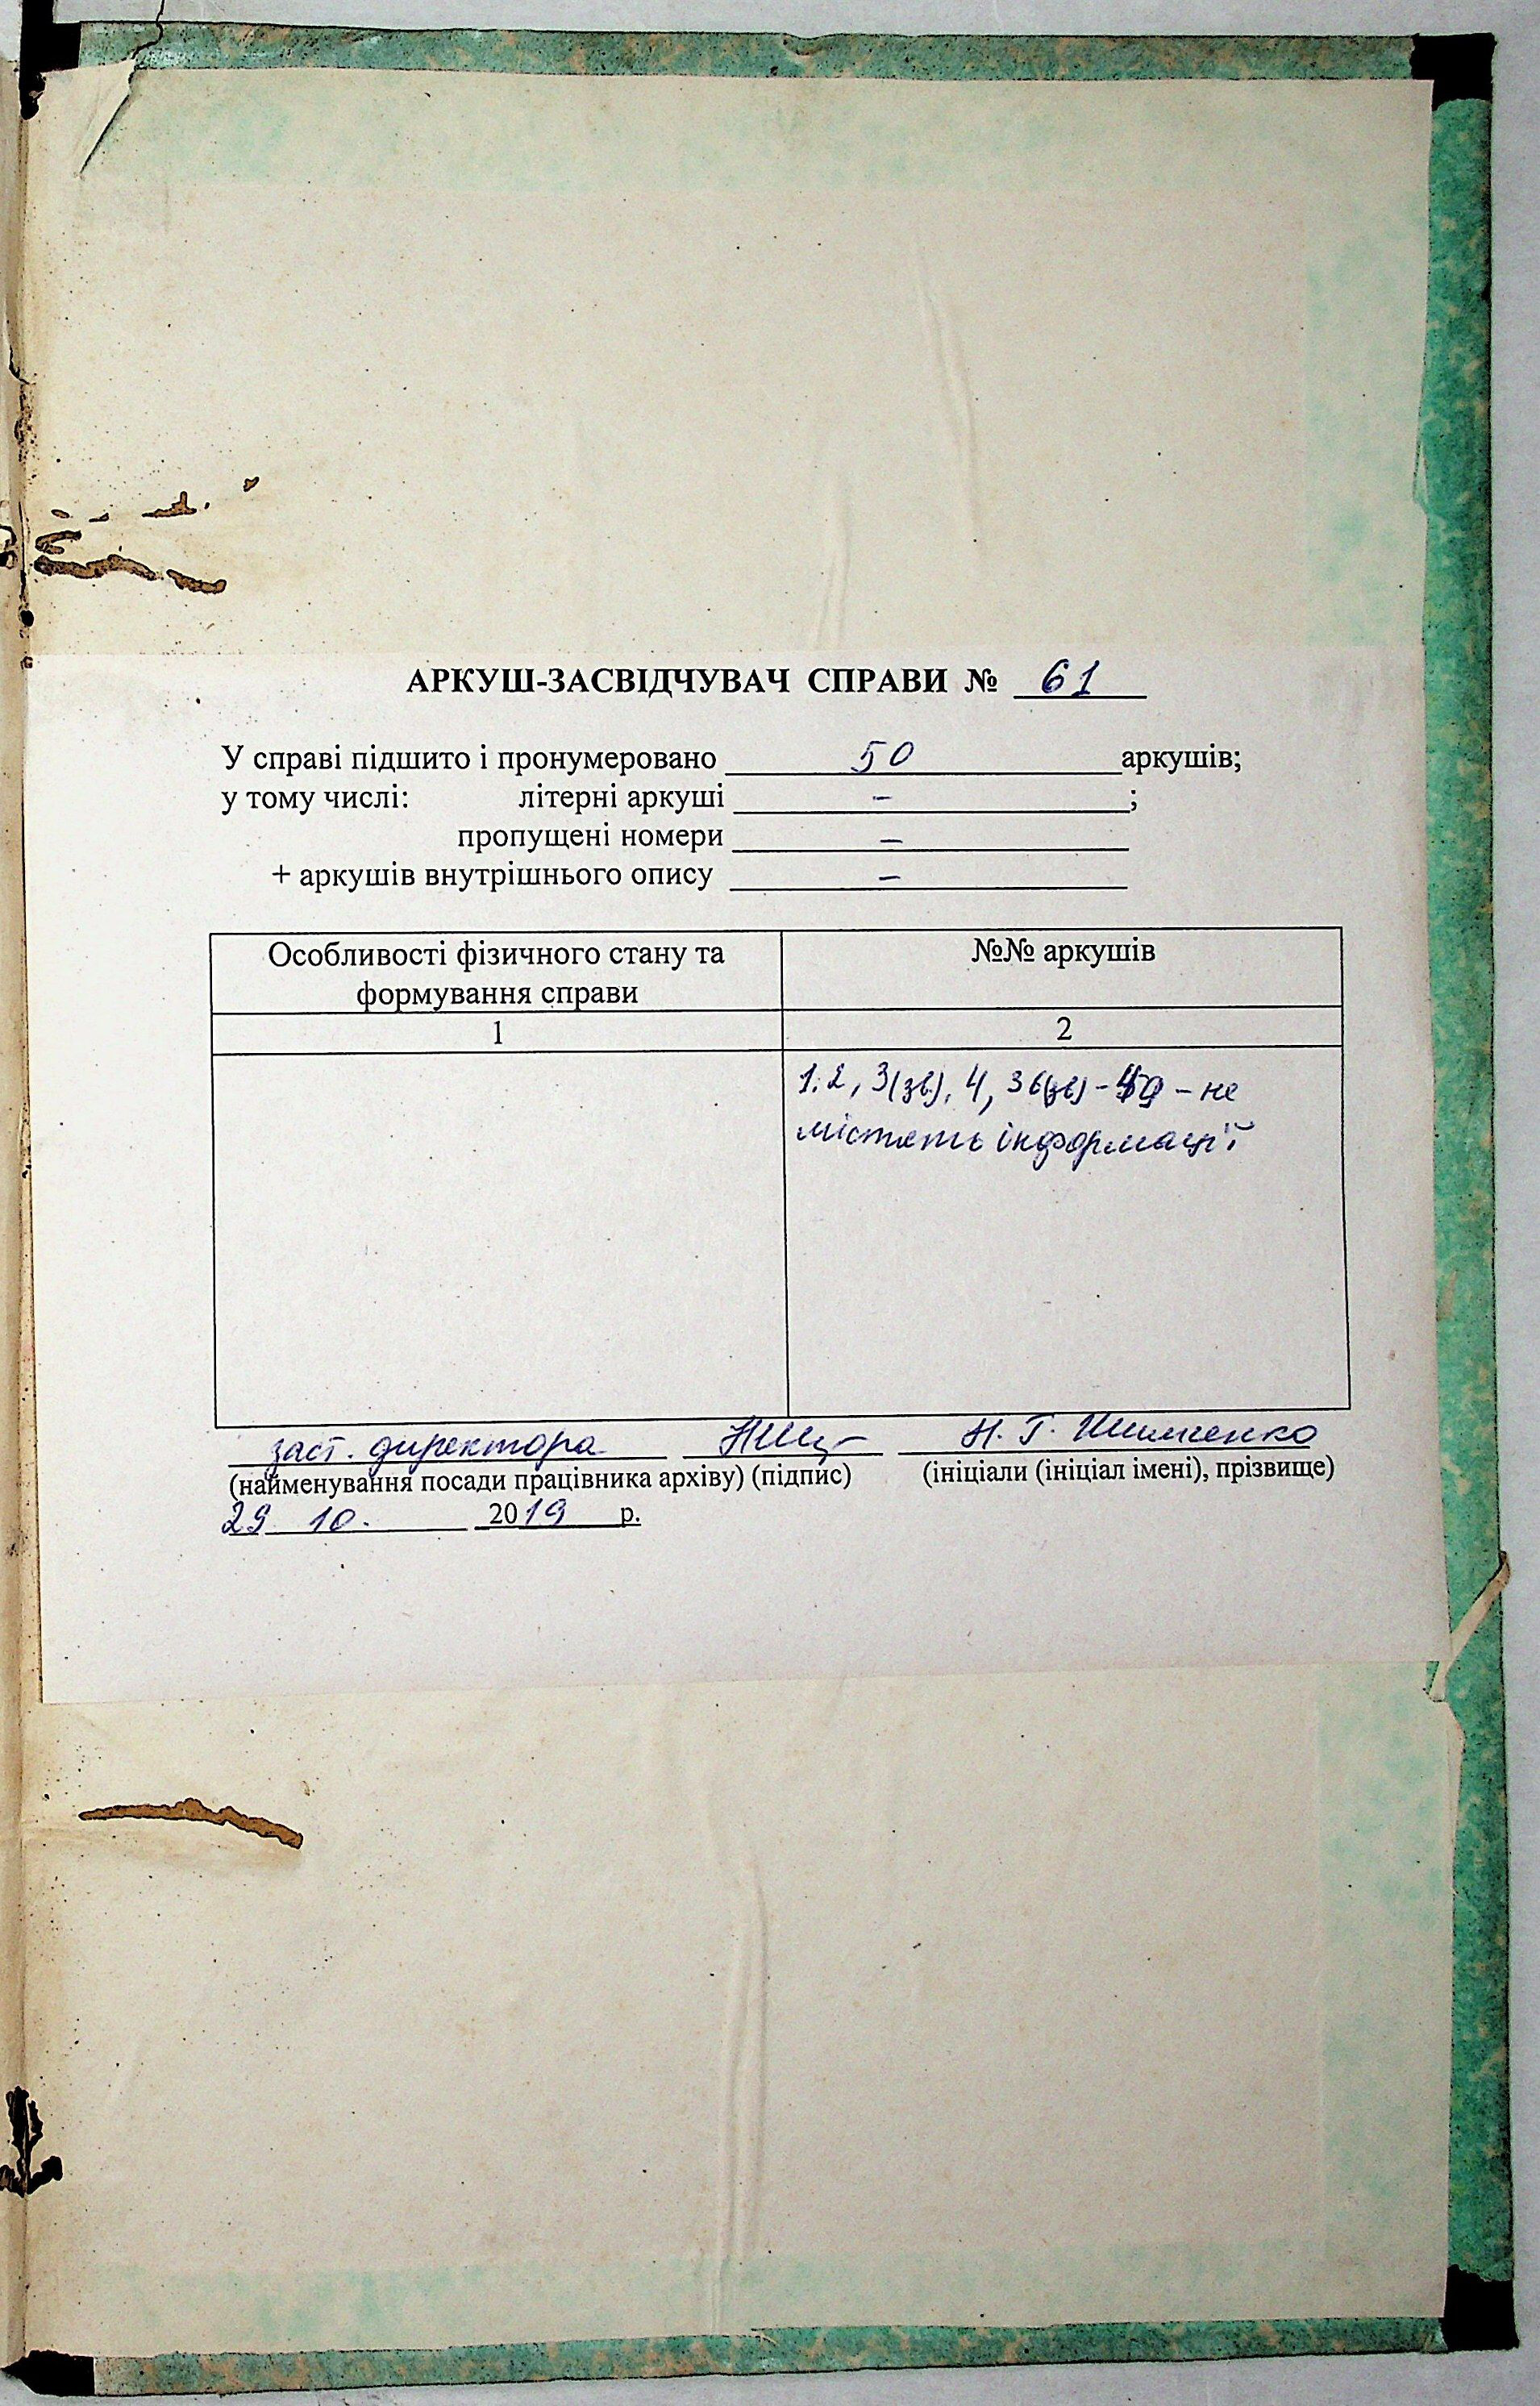 АРКУШ-ЗАСВІДЧУВАЧ СПРАВИ № 61
У справі підшито і пронумеровано 50 аркушів;
у тому числі: літерні аркуші – ;
пропущені номери –
+ аркушів внутрішнього опису –
Особливості фізичного стану та формування справи
№№ аркушів
1
2
1, 2, 3(зв), 4, 36(зв) – – не
містять інформації
заст. директора Н. Г.
(найменування посади працівника архіву) (підпис) (ініціали (ініціал імені), прізвище)
29 10. 2019 р.